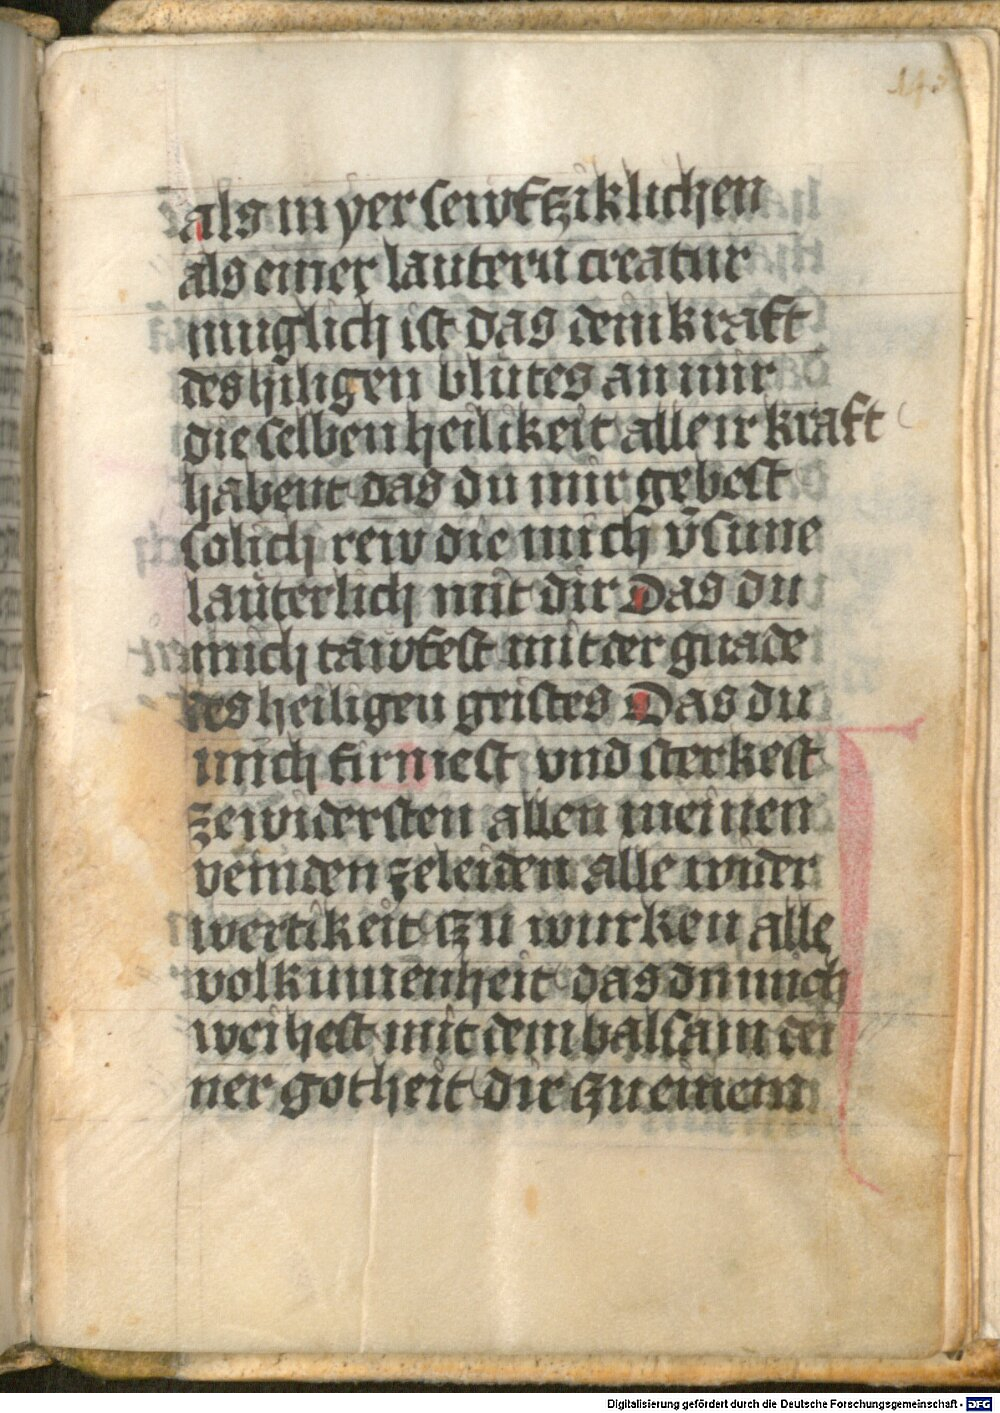 148
als in yer sewftziklichen
als einer lautern creatur
muglich ist das dem kraft
des hiligen blutes an mir
die selben heilikeit alle ir kraft
habent das du mir gebest
solich rew die mich v̄sune
lauterlich mit dir Das du
mich tawfest mit der gnade
des heiligen geistes Das du
mich firmest vnd sterkest
ze widersten allen meinen
veinden ze leiden alle wider
wertikeit czu wurken alle
volkumenheit das du mich
weihest mit dem balsam dei
ner gotheit dir czu einem
Digitalisierung gefördert durch die Deutsche Forschungsgemeinschaft - DFG